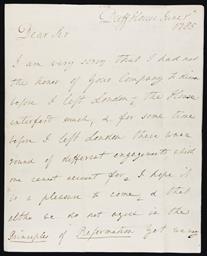 Duff House June
1785
Dear Sir
I am very sorry that I had not
the honor of your Company to dine
before I left London, the House
interfered much, & for some time
before I left London there was a
round of different engagements which
one cannot account for, I hope it
is a pleasure to come, & that
altho we do not agree in the
Principles of Reformation yet we may